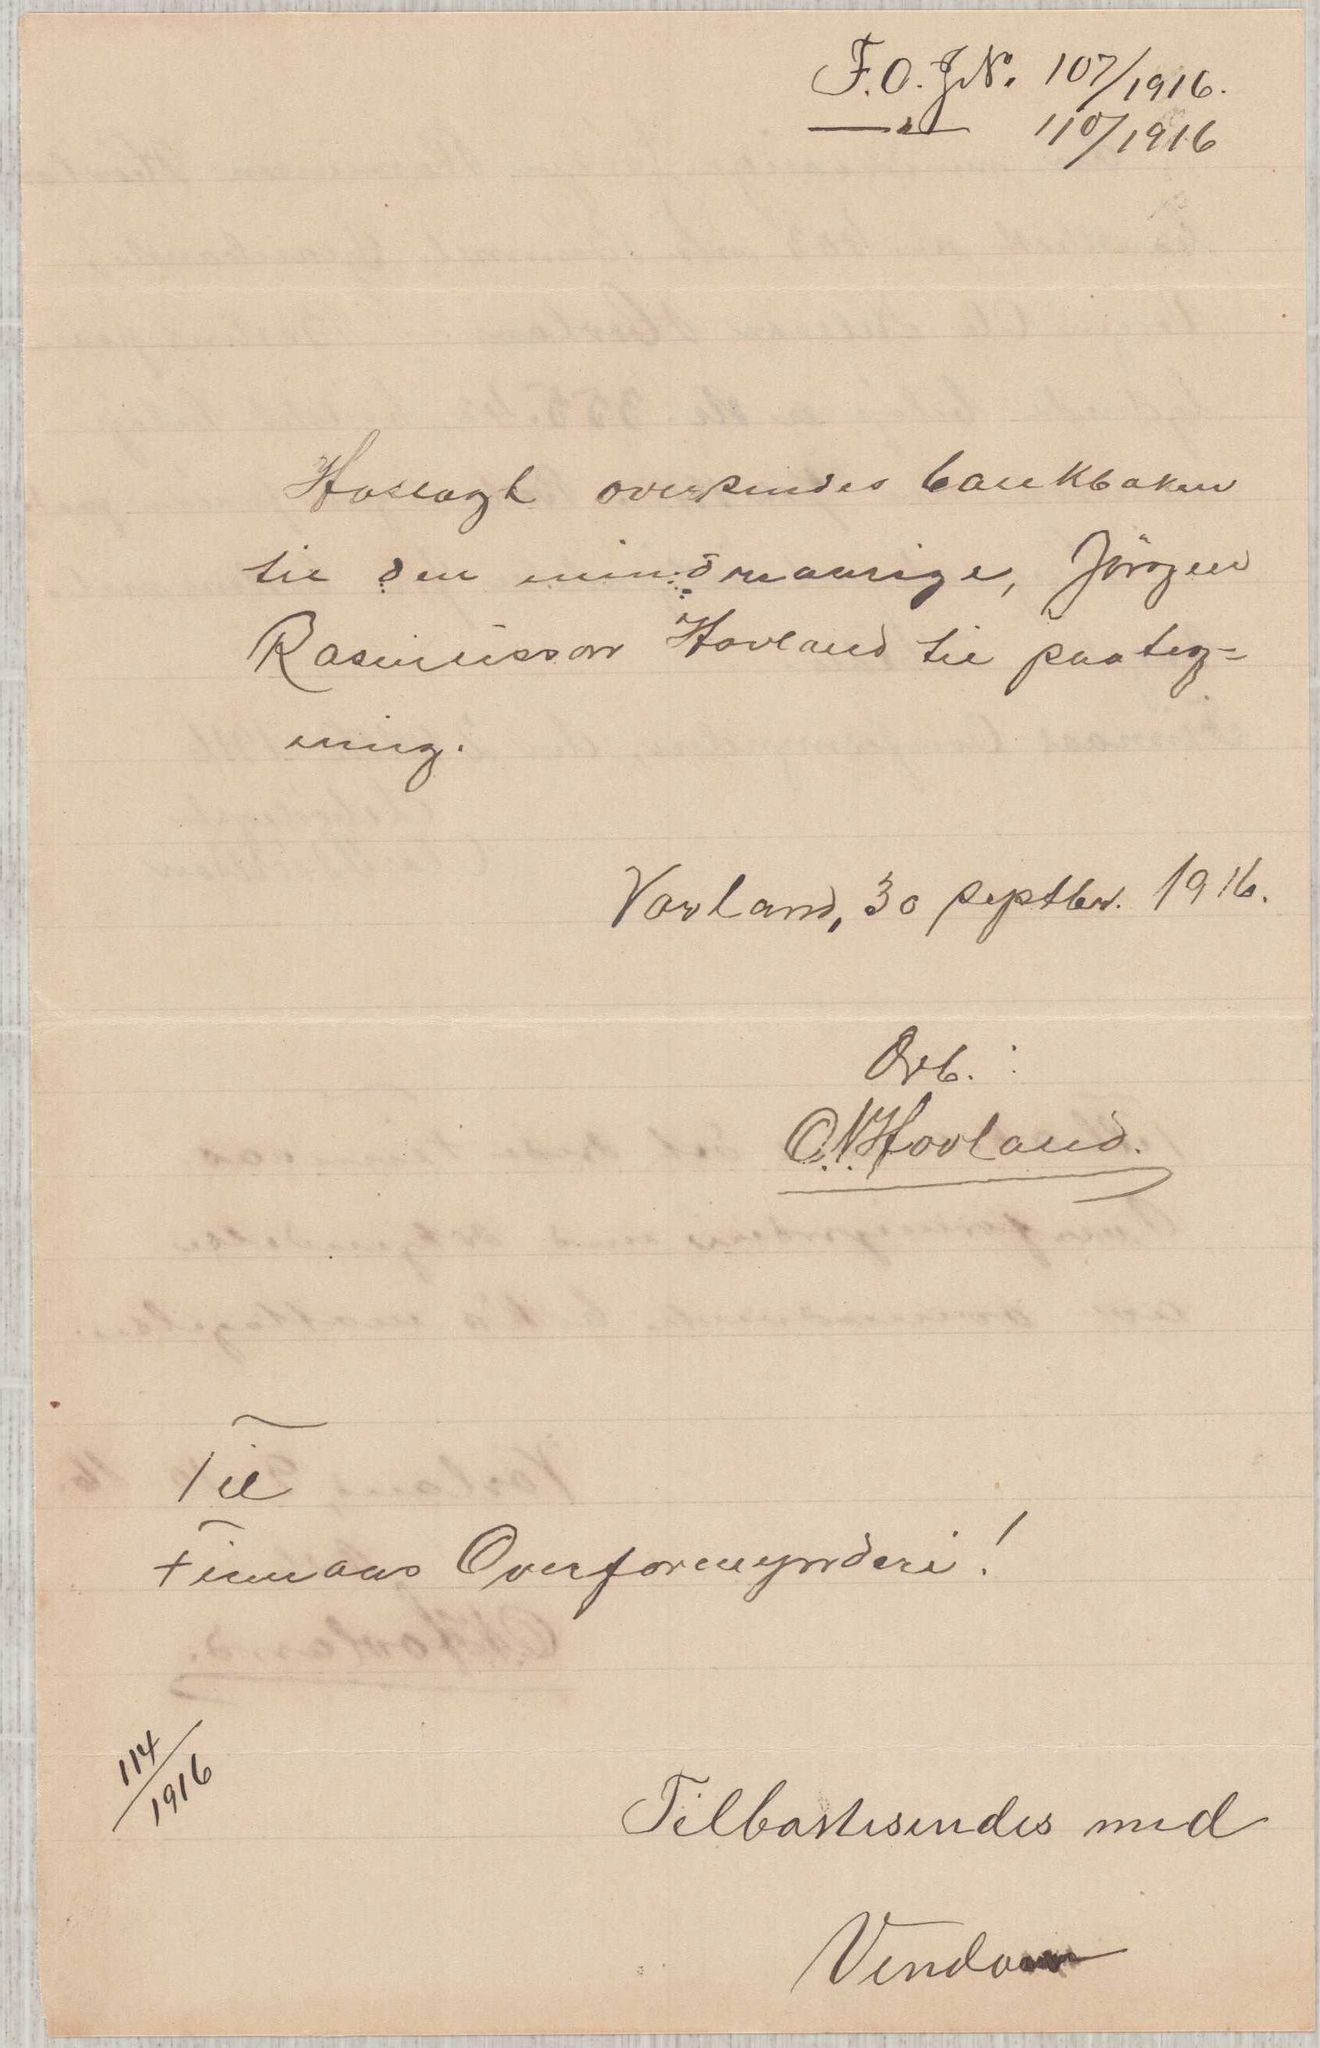 F.O.J.N. 107/1916.
—"— 110/1916
Hoslagt oversendes bankboken
til den mindreaarige, Jörgen
Rasmusson Hovland til paateg=
ning.
Vavland, 30 septbr. 1916.
Örb. :
O.N.Hovland.
Til
Finnaas Overformynderi!
114/1916
Tilbakesendes med